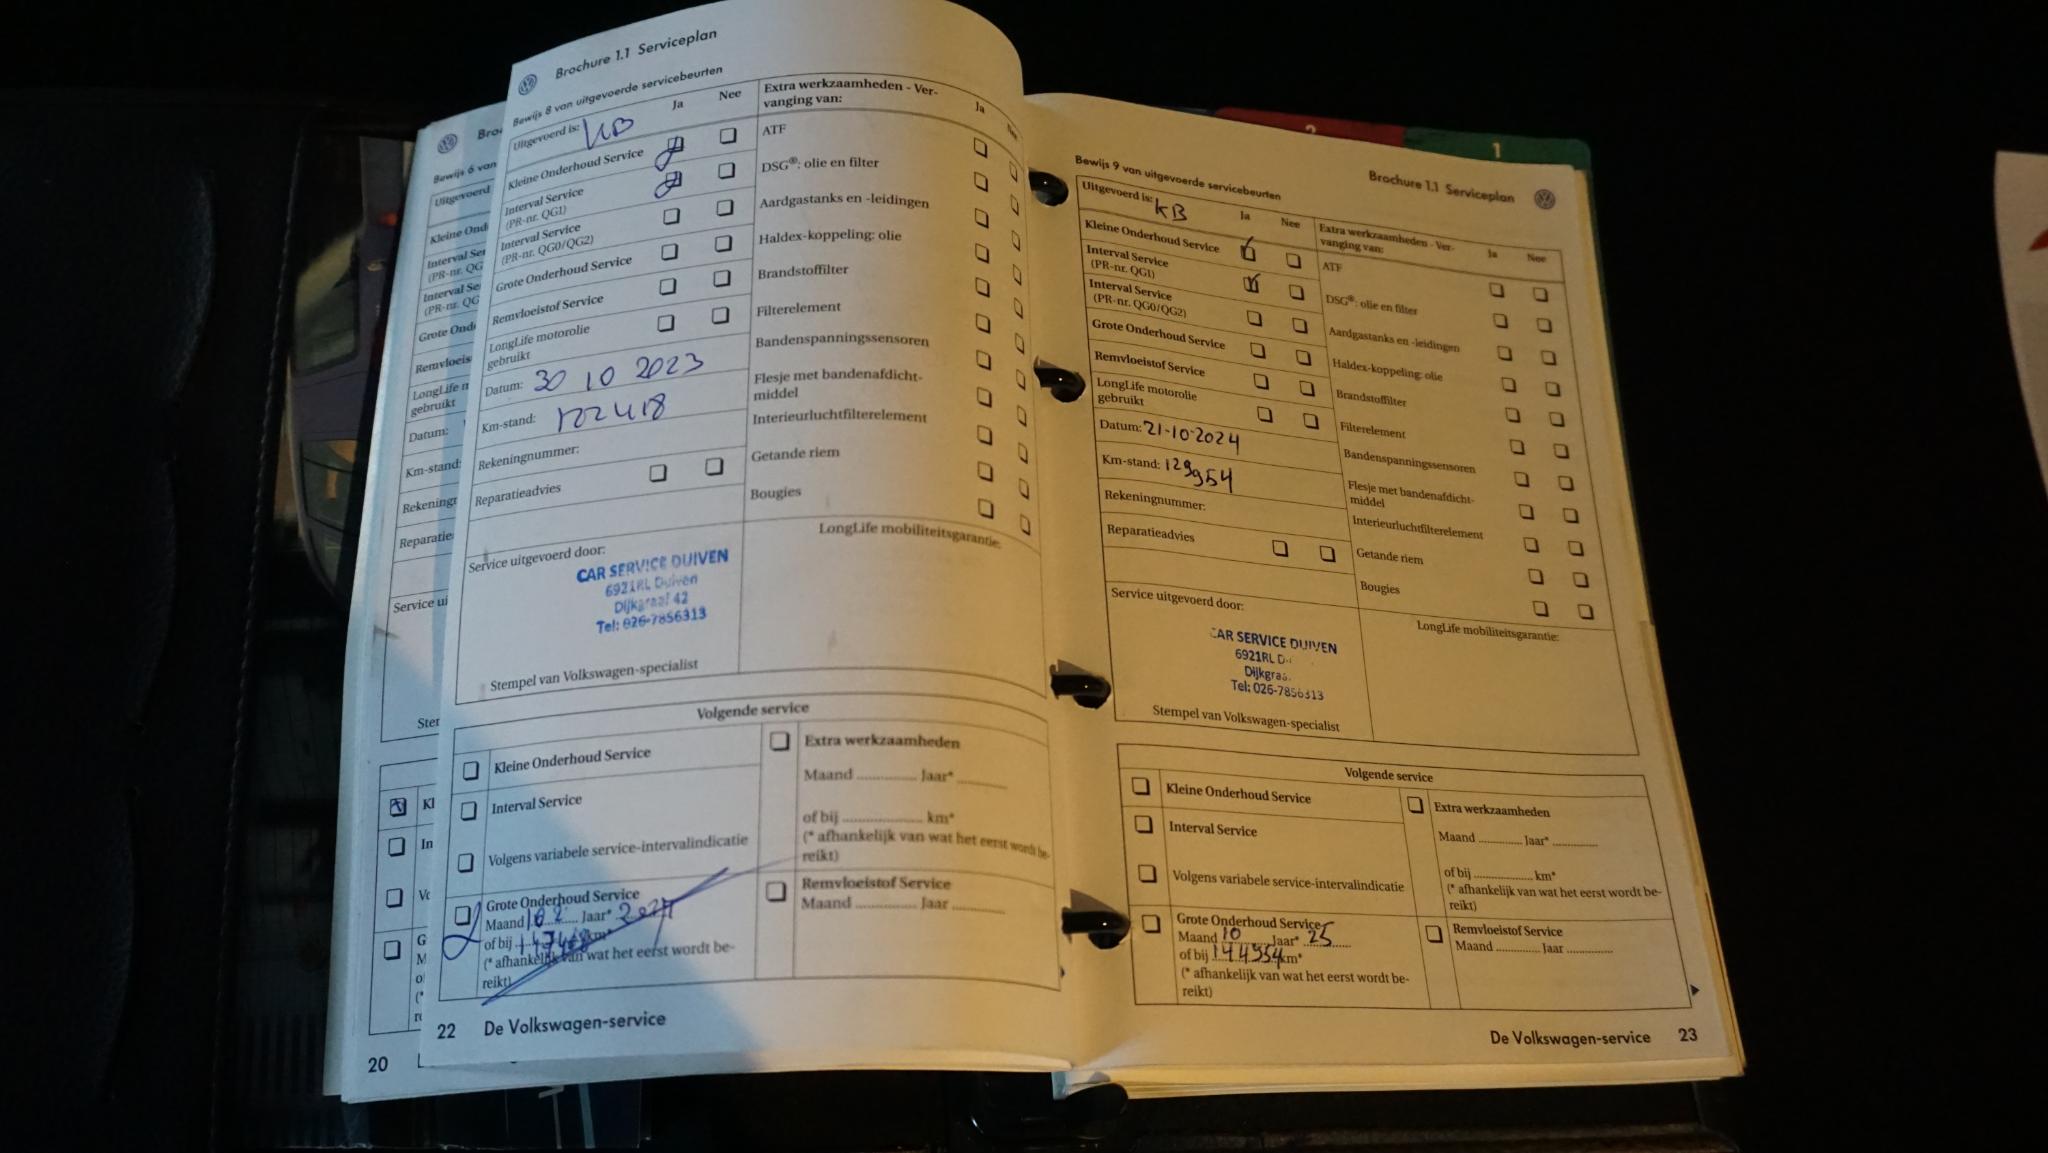 Brochure 1.1 Serviceplan
Bewijs 8 van uitgevoerde servicebeurten
Uitgevoerd is: KB
Ja
Nee
Kleine Onderhoud Service
Interval Service
(PR-nr. QG1)
Interval Service
(PR-nr. QG0/QG2)
Grote Onderhoud Service
Remvloeistof Service
LongLife motorolie
gebruikt
Datum: 30 10 2023
Km-stand: 122418
Rekeningnummer:
Reparatieadvies
Extra werkzaamheden - Ver-
vanging van:
Ja
Nee
ATF
DSG®: olie en filter
Aardgastanks en -leidingen
Haldex-koppeling: olie
Brandstoffilter
Filterelement
Bandenspanningssensoren
Flesje met bandenafdicht-
middel
Interieurluchtfilterelement
Getande riem
Bougies
Service uitgevoerd door:
CAR SERVICE DUIVEN
6921RL Duiven
Dijkgraaf 42
Tel: 026-7856313
Stempel van Volkswagen-specialist
LongLife mobiliteitsgarantie:
Volgende service
Kleine Onderhoud Service
Interval Service
Volgens variabele service-intervalindicatie
Grote Onderhoud Service
Maand Jaar*
of bij km*
(* afhankelijk van wat het eerst wordt be-
reikt)
Extra werkzaamheden
Maand ............... Jaar* ...............
of bij ..................... km*
(* afhankelijk van wat het eerst wordt be-
reikt)
Remvloeistof Service
Maand ............... Jaar ...............
22 De Volkswagen-service
Bewijs 6 van
Uitgevoerd
(PR-nr. QG
LongLife
gebruikt
Datum:
Km-stand:
Reparatie
Service ui
20
2
1
Brochure 1.1 Serviceplan
Bewijs 9 van uitgevoerde servicebeurten
Uitgevoerd is: KB
Ja
Nee
Kleine Onderhoud Service
Interval Service
(PR-nr. QG1)
Interval Service
(PR-nr. QG0/QG2)
Grote Onderhoud Service
Remvloeistof Service
LongLife motorolie
gebruikt
Datum: 21-10-2024
Km-stand: 129954
Rekeningnummer:
Reparatieadvies
Extra werkzaamheden - Ver-
vanging van:
Ja
Nee
ATF
DSG®: olie en filter
Aardgastanks en -leidingen
Haldex-koppeling: olie
Brandstoffilter
Filterelement
Bandenspanningssensoren
Flesje met bandenafdicht-
middel
Interieurluchtfilterelement
Getande riem
Bougies
Service uitgevoerd door:
CAR SERVICE DUIVEN
6921RL
Tel: 026-7856313
Stempel van Volkswagen-specialist
LongLife mobiliteitsgarantie:
Volgende service
Kleine Onderhoud Service
Interval Service
Volgens variabele service-intervalindicatie
Grote Onderhoud Service
Maand 10 Jaar* 25
of bij 144954 km*
(* afhankelijk van wat het eerst wordt be-
reikt)
Extra werkzaamheden
Maand ............. Jaar* .............
of bij .................. km*
(* afhankelijk van wat het eerst wordt be-
reikt)
Remvloeistof Service
Maand ............. Jaar .............
De Volkswagen-service 23